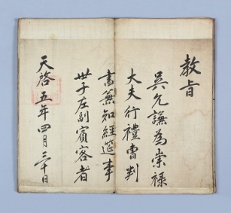 教旨
吳允謙為崇祿
大夫行禮曹判
書兼知經筵事
世子左副賓客者
天啓五年四月三十日